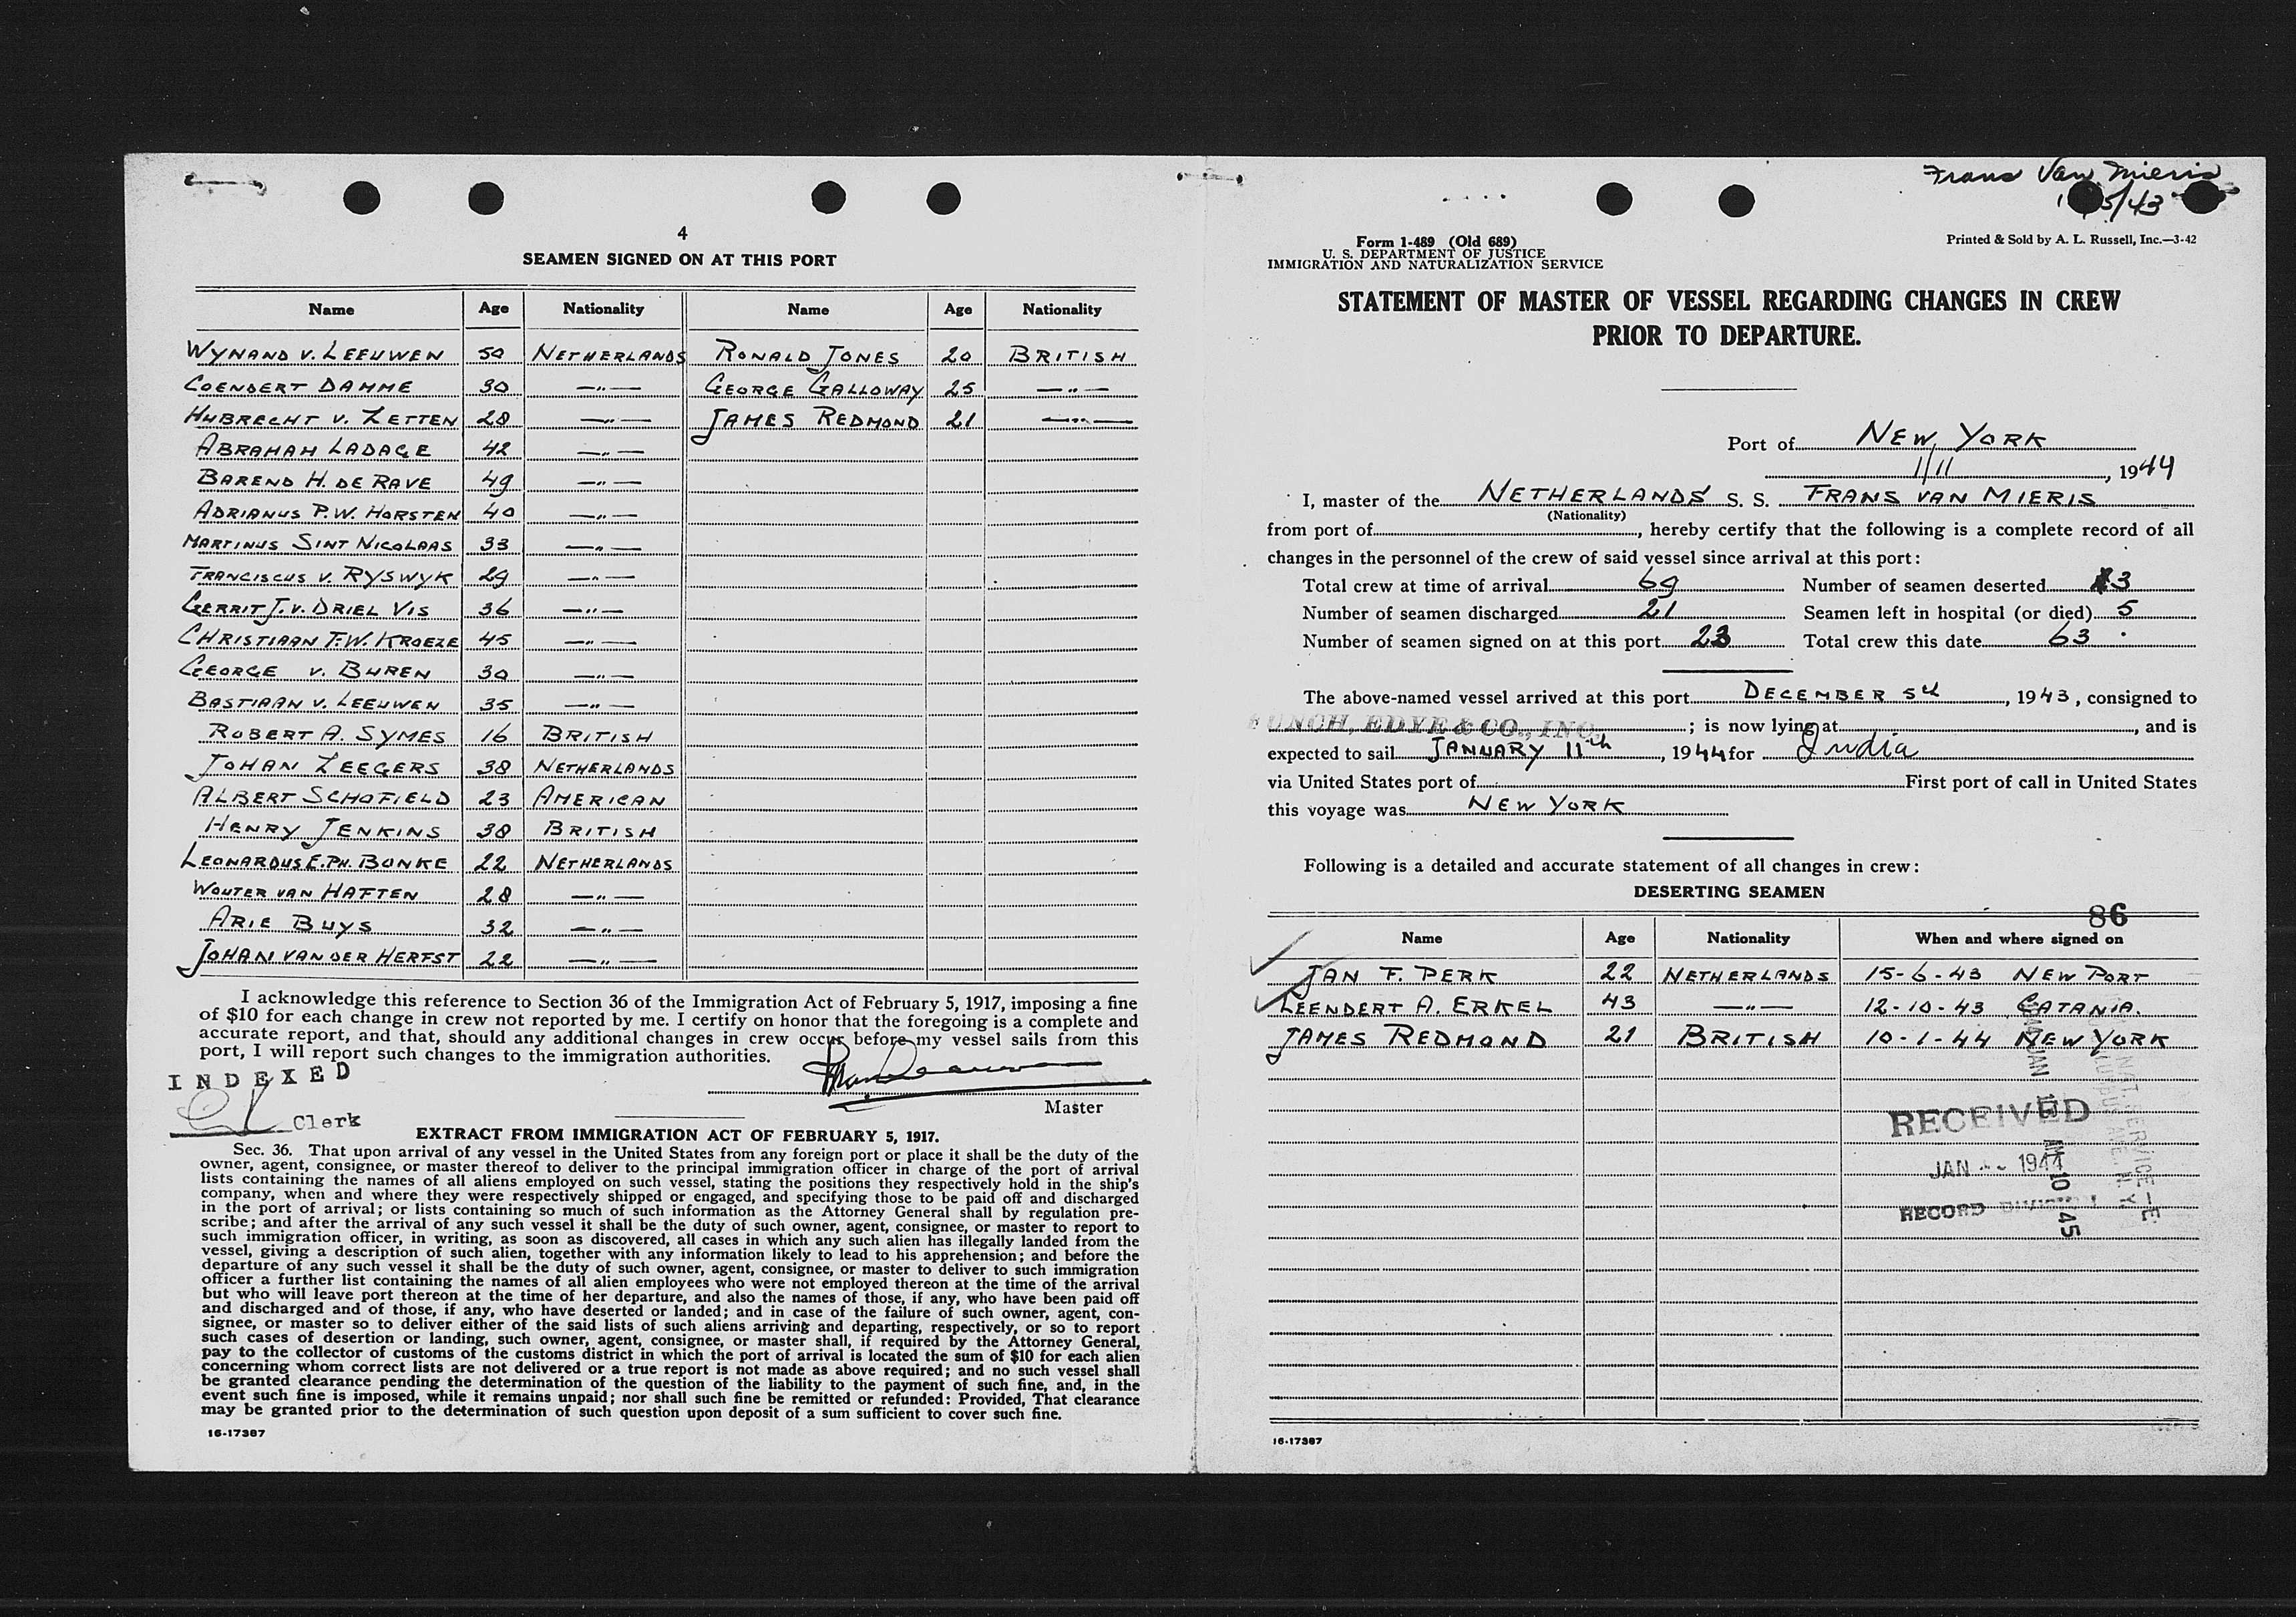 4
SEAMEN SIGNED ON AT THIS PORT
Name Age Nationality Name Age Nationality
WYNAND V. LEEUWEN 50 NETHERLANDS RONALD JONES 20 BRITISH
COENDERT DAMME 30 —〃— GEORGE GALLOWAY 25 —〃—
HUBRECHT V. LETTEN 28 —〃— JAMES REDMOND 21 —〃—
ABRAHAM LADAGE 42 —〃—
BAREND H. DE RAVE 49 —〃—
ADRIANUS P.W. HORSTEN 40 —〃—
MARTINUS SINT NICOLAAS 33 —〃—
FRANCISCUS V. RYSWYK 29 —〃—
GERRIT J. V. DRIEL VIS 36 —〃—
CHRISTIAAN T.W. KROEZE 45 —〃—
GEORGE V. BUREN 30 —〃—
BASTIAAN V. LEEUWEN 35 —〃—
ROBERT A. SYMES 16 BRITISH
JOHAN ZEEGERS 38 NETHERLANDS
ALBERT SCHOFIELD 23 AMERICAN
HENRY JENKINS 38 BRITISH
LEONARDUS E.PH. BUNKE 22 NETHERLANDS
WOUTER VAN HAFTEN 28 —〃—
ARIE BUYS 32 —〃—
JOHAN VAN DER HERFST 22 —〃—
I acknowledge this reference to Section 36 of the Immigration Act of February 5, 1917, imposing a fine
of $10 for each change in crew not reported by me. I certify on honor that the foregoing is a complete and
accurate report, and that, should any additional changes in crew occur before my vessel sails from this
port, I will report such changes to the immigration authorities.
INDEXED
Master
Clerk
EXTRACT FROM IMMIGRATION ACT OF FEBRUARY 5, 1917.
Sec. 36. That upon arrival of any vessel in the United States from any foreign port or place it shall be the duty of the
owner, agent, consignee, or master thereof to deliver to the principal immigration officer in charge of the port of arrival
lists containing the names of all aliens employed on such vessel, stating the positions they respectively hold in the ship's
company, when and where they were respectively shipped or engaged, and specifying those to be paid off and discharged
in the port of arrival; or lists containing so much of such information as the Attorney General shall by regulation pre-
scribe; and after the arrival of any such vessel it shall be the duty of such owner, agent, consignee, or master to report to
such immigration officer, in writing, as soon as discovered, all cases in which any such alien has illegally landed from the
vessel, giving a description of such alien, together with any information likely to lead to his apprehension; and before the
departure of any such vessel it shall be the duty of such owner, agent, consignee, or master to deliver to such immigration
officer a further list containing the names of all alien employees who were not employed thereon at the time of the arrival
but who will leave port thereon at the time of her departure, and also the names of those, if any, who have been paid off
and discharged and of those, if any, who have deserted or landed; and in case of the failure of such owner, agent, con-
signee, or master so to deliver either of the said lists of such aliens arriving and departing, respectively, or so to report
such cases of desertion or landing, such owner, agent, consignee, or master shall, if required by the Attorney General,
pay to the collector of customs of the customs district in which the port of arrival is located the sum of $10 for each alien
concerning whom correct lists are not delivered or a true report is not made as above required; and no such vessel shall
be granted clearance pending the determination of the question of the liability to the payment of such fine, and, in the
event such fine is imposed, while it remains unpaid; nor shall such fine be remitted or refunded: Provided, That clearance
may be granted prior to the determination of such question upon deposit of a sum sufficient to cover such fine.
16-17387
Frans Van Mieris
5/43
Form I-489 (Old 689)
U. S. DEPARTMENT OF JUSTICE
IMMIGRATION AND NATURALIZATION SERVICE
Printed & Sold by A. L. Russell, Inc.—3-42
STATEMENT OF MASTER OF VESSEL REGARDING CHANGES IN CREW
PRIOR TO DEPARTURE.
Port of NEW YORK
1/11, 1944
I, master of the NETHERLANDS S. S. FRANS VAN MIERIS
(Nationality)
from port of, hereby certify that the following is a complete record of all
changes in the personnel of the crew of said vessel since arrival at this port:
Total crew at time of arrival 69 Number of seamen deserted 3
Number of seamen discharged 21 Seamen left in hospital (or died) 5
Number of seamen signed on at this port 23 Total crew this date 63
The above-named vessel arrived at this port DECEMBER 5th, 1943, consigned to
FUNCH, EDYE & CO., INC.; is now lying at, and is
expected to sail JANUARY 11th, 1944 for India
via United States port of First port of call in United States
this voyage was NEW YORK
Following is a detailed and accurate statement of all changes in crew:
DESERTING SEAMEN
86
Name Age Nationality When and where signed on
JAN F. PERK 22 NETHERLANDS 15-6-43 NEW PORT
LEENDERT A. ERKEL 43 —〃— 12-10-43 CATANIA.
JAMES REDMOND 21 BRITISH 10-1-44 NEW YORK
RECEIVED
JAN 1944
RECORD DIVISION
JAN 13 AM 10 45
16-17387